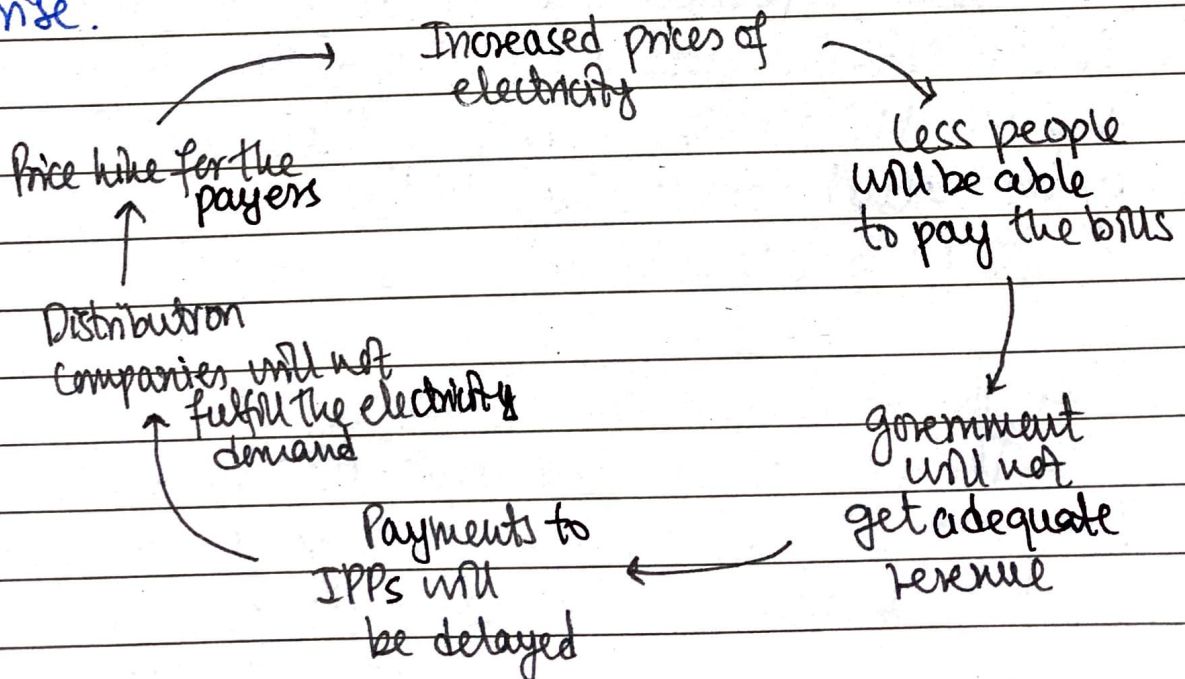 Increased prices of
electricity
less people
will be able
to pay the bills
government
will not
get adequate
revenue
Payments to
IPPs will
be delayed
Distribution
companies will not
fulfill the electricity
demand
Price hike for the
payers